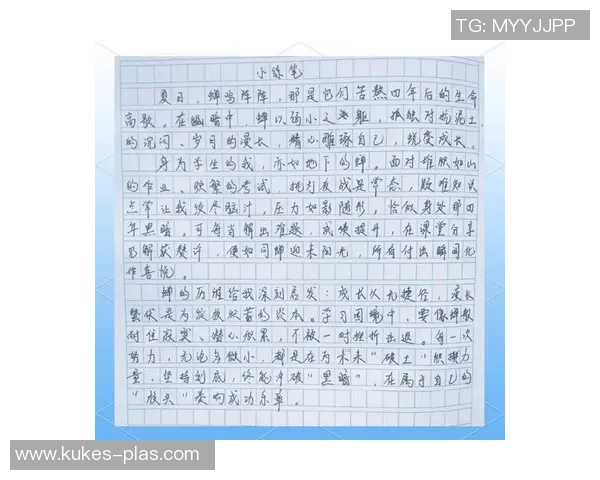 TG: MYYJJPP
小练笔
夏日，蝉鸣阵阵，那是它们苦熬四年后的生命
高歌。在幽暗中，蝉以弱小之躯，孤独对抗泥土
的沉闷、岁月的漫长，精心雕琢自己，蜕变成长。
身为学生的我，亦如地下的蝉。面对堆积如山
的作业、频繁的考试，挑灯夜战是常态，疑难知识
点常让我绞尽脑汁，压力如影随形，恰似身处那四
年黑暗。可每当解出难题，成绩提升，在课堂分享
见解获赞许，便如同蝉迎来阳光，所有付出瞬间化
作喜悦。
蝉的历程给我深刻启发：成长从无捷径，漫长
蛰伏是为发致积蓄的资本。学习困境中，要像蝉般
耐住寂寞、潜心积累，不被一时挫折击退。每一次
努力，无论多微小，都是在为未来"破土"积攒力
量，坚持到底，终能冲破"黑暗"，在属于自己的
"枝头"奏响成功乐章。
www.kukes-plas.com